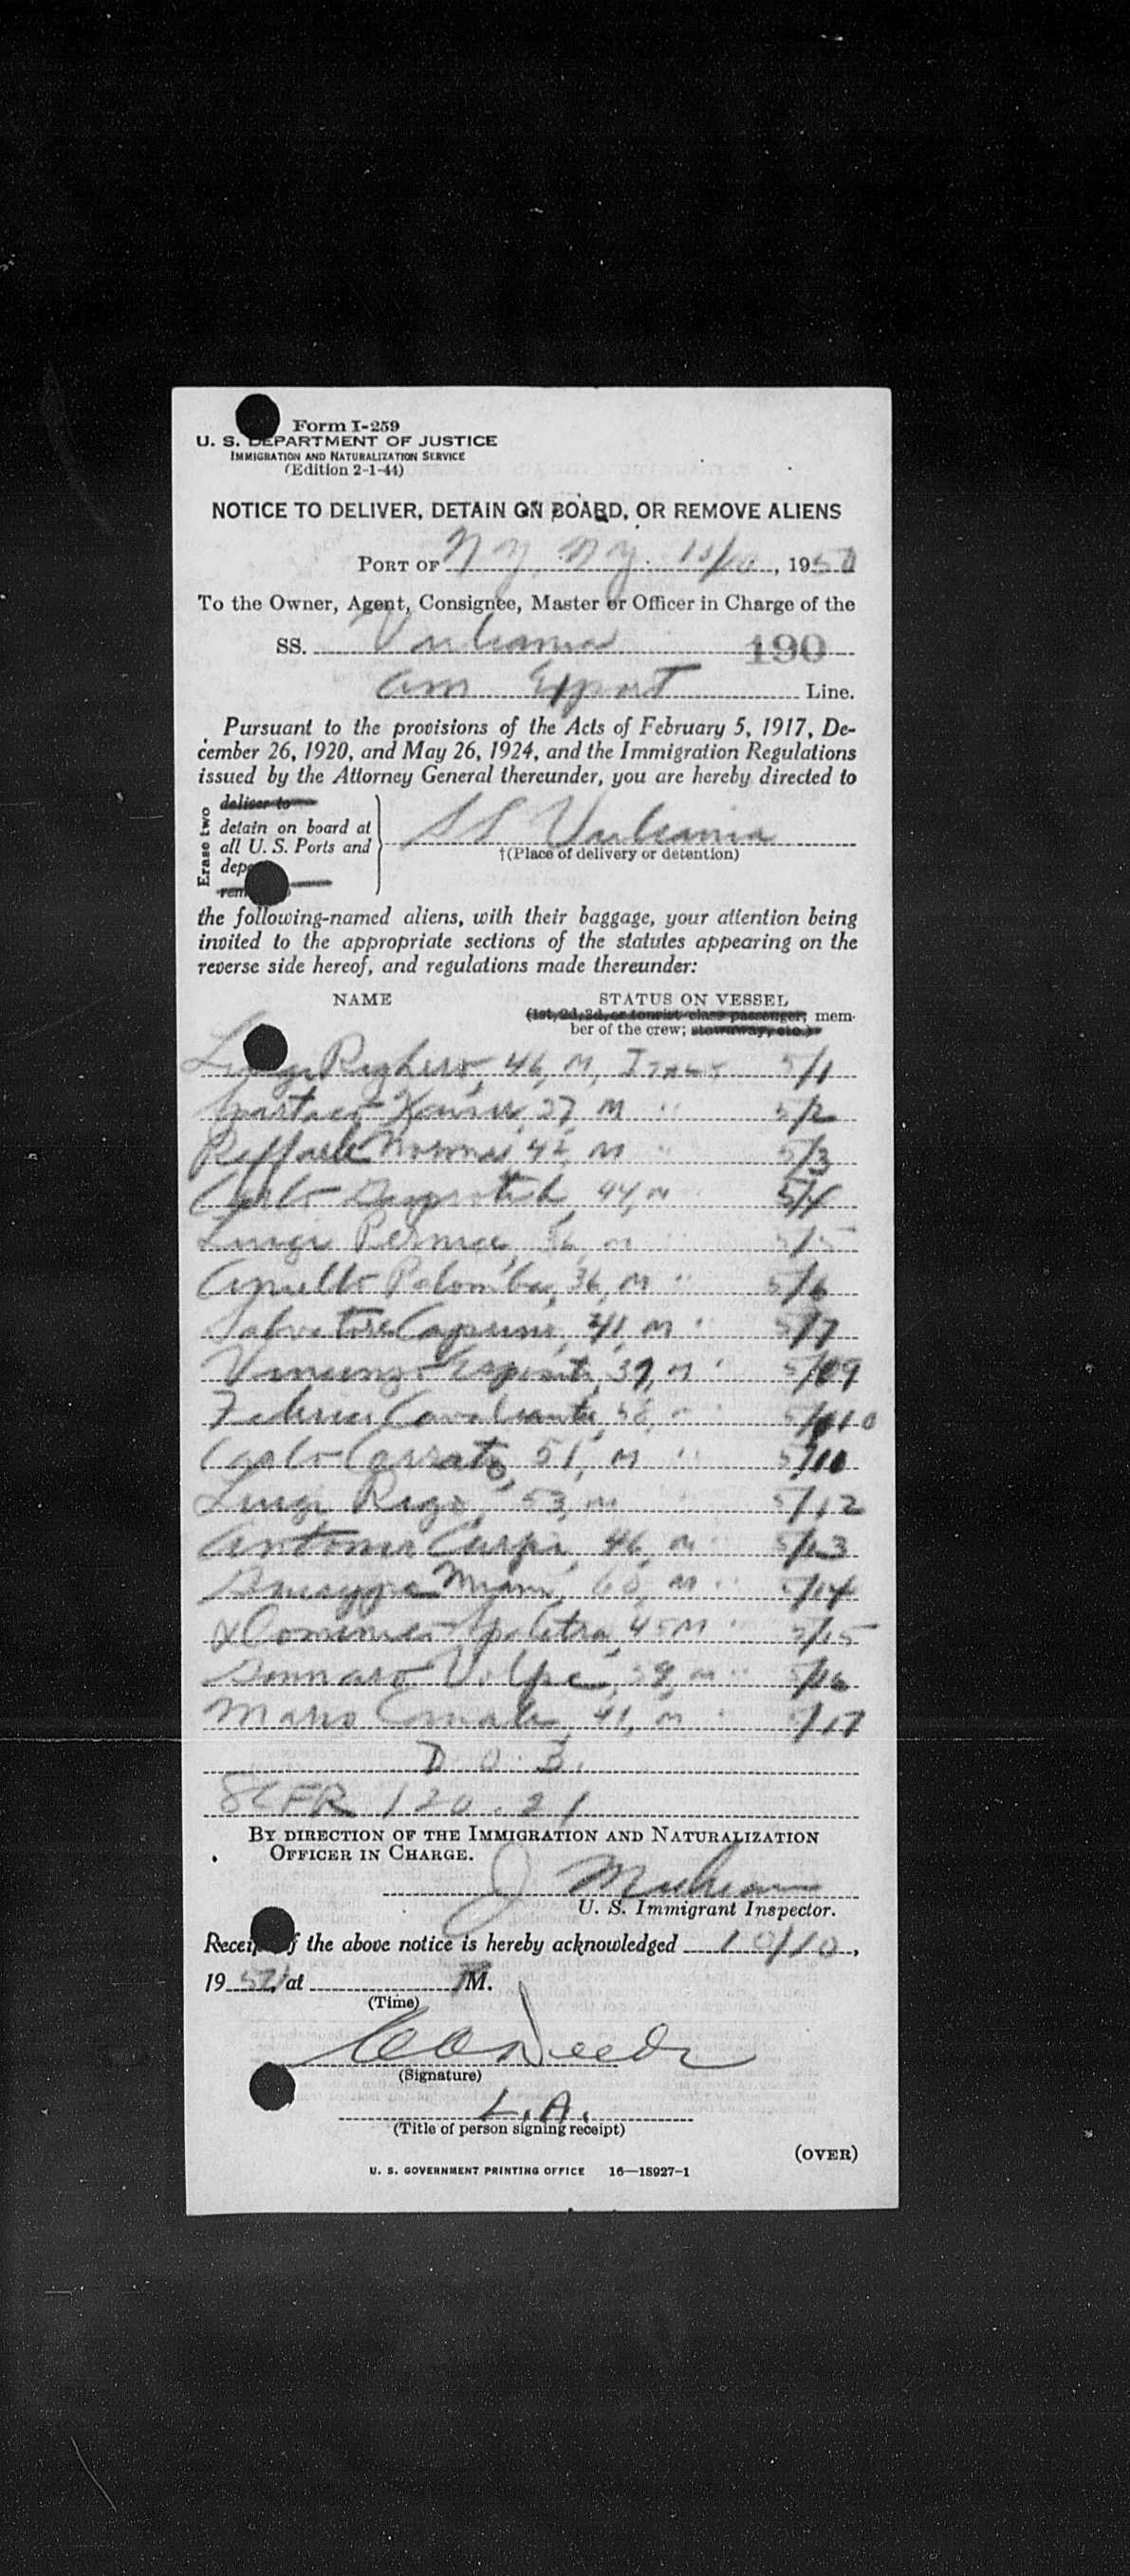 Form I-259
U. S. DEPARTMENT OF JUSTICE
IMMIGRATION AND NATURALIZATION SERVICE
(Edition 2-1-44)
NOTICE TO DELIVER, DETAIN ON BOARD, OR REMOVE ALIENS
PORT OF N Y, N Y. 10/10, 1950
To the Owner, Agent, Consignee, Master or Officer in Charge of the
SS. Vulcania 190
Am Export Line.
Pursuant to the provisions of the Acts of February 5, 1917, De-
cember 26, 1920, and May 26, 1924, and the Immigration Regulations
issued by the Attorney General thereunder, you are hereby directed to
Erase two
deliver to
detain on board at
all U. S. Ports and
SS Vulcania
†(Place of delivery or detention)
the following-named aliens, with their baggage, your attention being
invited to the appropriate sections of the statutes appearing on the
reverse side hereof, and regulations made thereunder:
NAME STATUS ON VESSEL
(1st, 2d, 3d, or tourist class passenger; mem-
ber of the crew; stowaway, etc.)
Luigi Righero, 46, M, ITALY 5/1
37, M " 5/2
Raffaele 42, M " 5/3
Carlo 44, M 5/4
Luigi Pernice, M " 5/5
Aniello Palomba, 36, M " 5/6
Salvatore 41, M " 5/7
Vincenzo Esposito, 39, M " 5/09
Federico Cavaliante, 5/10
Carlo Carrato, 51, M " 5/11
Luigi Rigo, 53, M " 5/12
Antonio 46, M " 5/13
Giuseppe Miani, M " 5/14
x Domenico Spaletra, 45 M " 5/15
Gennaro Volpe, M " 5/16
Mario 41, M " 5/17
D. O. B.
8CFR 120.21
BY DIRECTION OF THE IMMIGRATION AND NATURALIZATION
OFFICER IN CHARGE.
J
U. S. Immigrant Inspector.
Receipt of the above notice is hereby acknowledged 10/10,
19 50, at M.
(Time)
(Signature)
L.A.
(Title of person signing receipt)
(OVER)
U. S. GOVERNMENT PRINTING OFFICE 16—18927-1